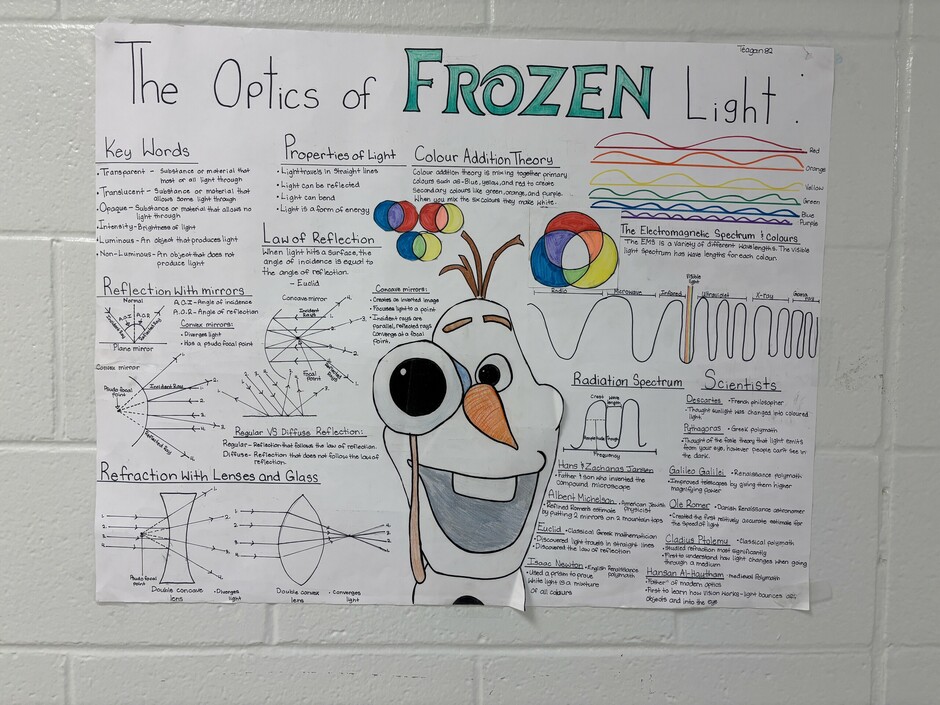 Teagan 82
The Optics of FROZEN Light
Key Words
• Transparent - Substance or material that
most or all light through
• Translucent - Substance or material that
allows some light through
• Opaque - Substance or material that allows no
light through
• Intensity - Brightness of light
• Luminous - An object that produces light
• Non-Luminous - An object that does not
produce light
Properties of Light
• Light travels in Straight lines
• Light can be reflected
• Light can bend
• Light is a form of energy
Law of Reflection
When light hits a surface, the
angle of incidence is equal to
the angle of reflection.
- Euclid
Colour Addition Theory
Colour addition theory is mixing together primary
colours such as - Blue, yellow, and red to create
Secondary colours like green, orange, and purple.
When you mix the six colours they make white.
Red
Orange
Yellow
Green
Blue
Purple
The Electromagnetic Spectrum & Colours
The EMS is a variety of different wavelengths. The visible
light spectrum has wave lengths for each colour.
Visible
light
Radio
Microwave
Infared
Ultraviolet
X-ray
Gama
Ray
Reflection With mirrors
Normal
A.O.I
A.O.R
Incident Ray
Reflected Ray
Plane mirror
A.O.I - Angle of incidence
A.O.R - Angle of reflection
Convex mirrors:
• Diverges light
• Has a pusdo focal point
Convex mirror
Pusdo focal
point
Incident Ray
Reflected Ray
1.
2.
3.
4.
Concave mirror
Incident
Rays
Focal
Point
Reflected
Rays
4.
3.
2.
1.
Concave mirrors:
• Creates an inverted image
• Focuses light to a point
• Incident rays are
parallel, reflected rays
Converge at a focal
point.
Regular VS Diffuse Reflection:
Regular - Reflection that follows the law of reflection.
Diffuse - Reflection that does not follow the law of
reflection.
Refraction With Lenses and Glass
1.
2.
3.
4.
Pusdo focal
point
Double concave
lens
• Diverges
light
1.
2.
3.
4.
Double convex
lens
• Converges
light
Radiation Spectrum
Crest
Wave
length
Trough
Frequency
Scientists
Descartes • French philosopher
• Thought sunlight was changed into coloured
light.
Pythagoras • Greek polymath
• Thought of the false theory that light emits
from your eye, however people can't see in
the dark.
Hans & Zacharias Janssen
• Father & son who invented the
compound microscope
Galileo Galilei • Renaissance polymath
• Improved telescopes by giving them higher
magnifying power
Albert Michelson • American Jewish
physicist
• Refined Romer's estimate
by putting 2 mirrors on 2 mountain tops
Ole Romer • Danish Renaissance astronomer
• Created the first relatively accurate estimate for
the speed of light
Euclid • Classical Greek mathematician
• Discovered light travels in straight lines
• Discovered the law of reflection
Cladius Ptolemy • Classical polymath
• Studied refraction most significantly
• First to understand how light changes when going
through a medium
Isaac Newton • English Renaissance
polymath
• Used a prism to prove
white light is a mixture
of all colours
Hansan Al-Hautham • medieval Polymath
• "Father" of modern optics
• First to learn how vision works - light bounces off
objects and into the eye